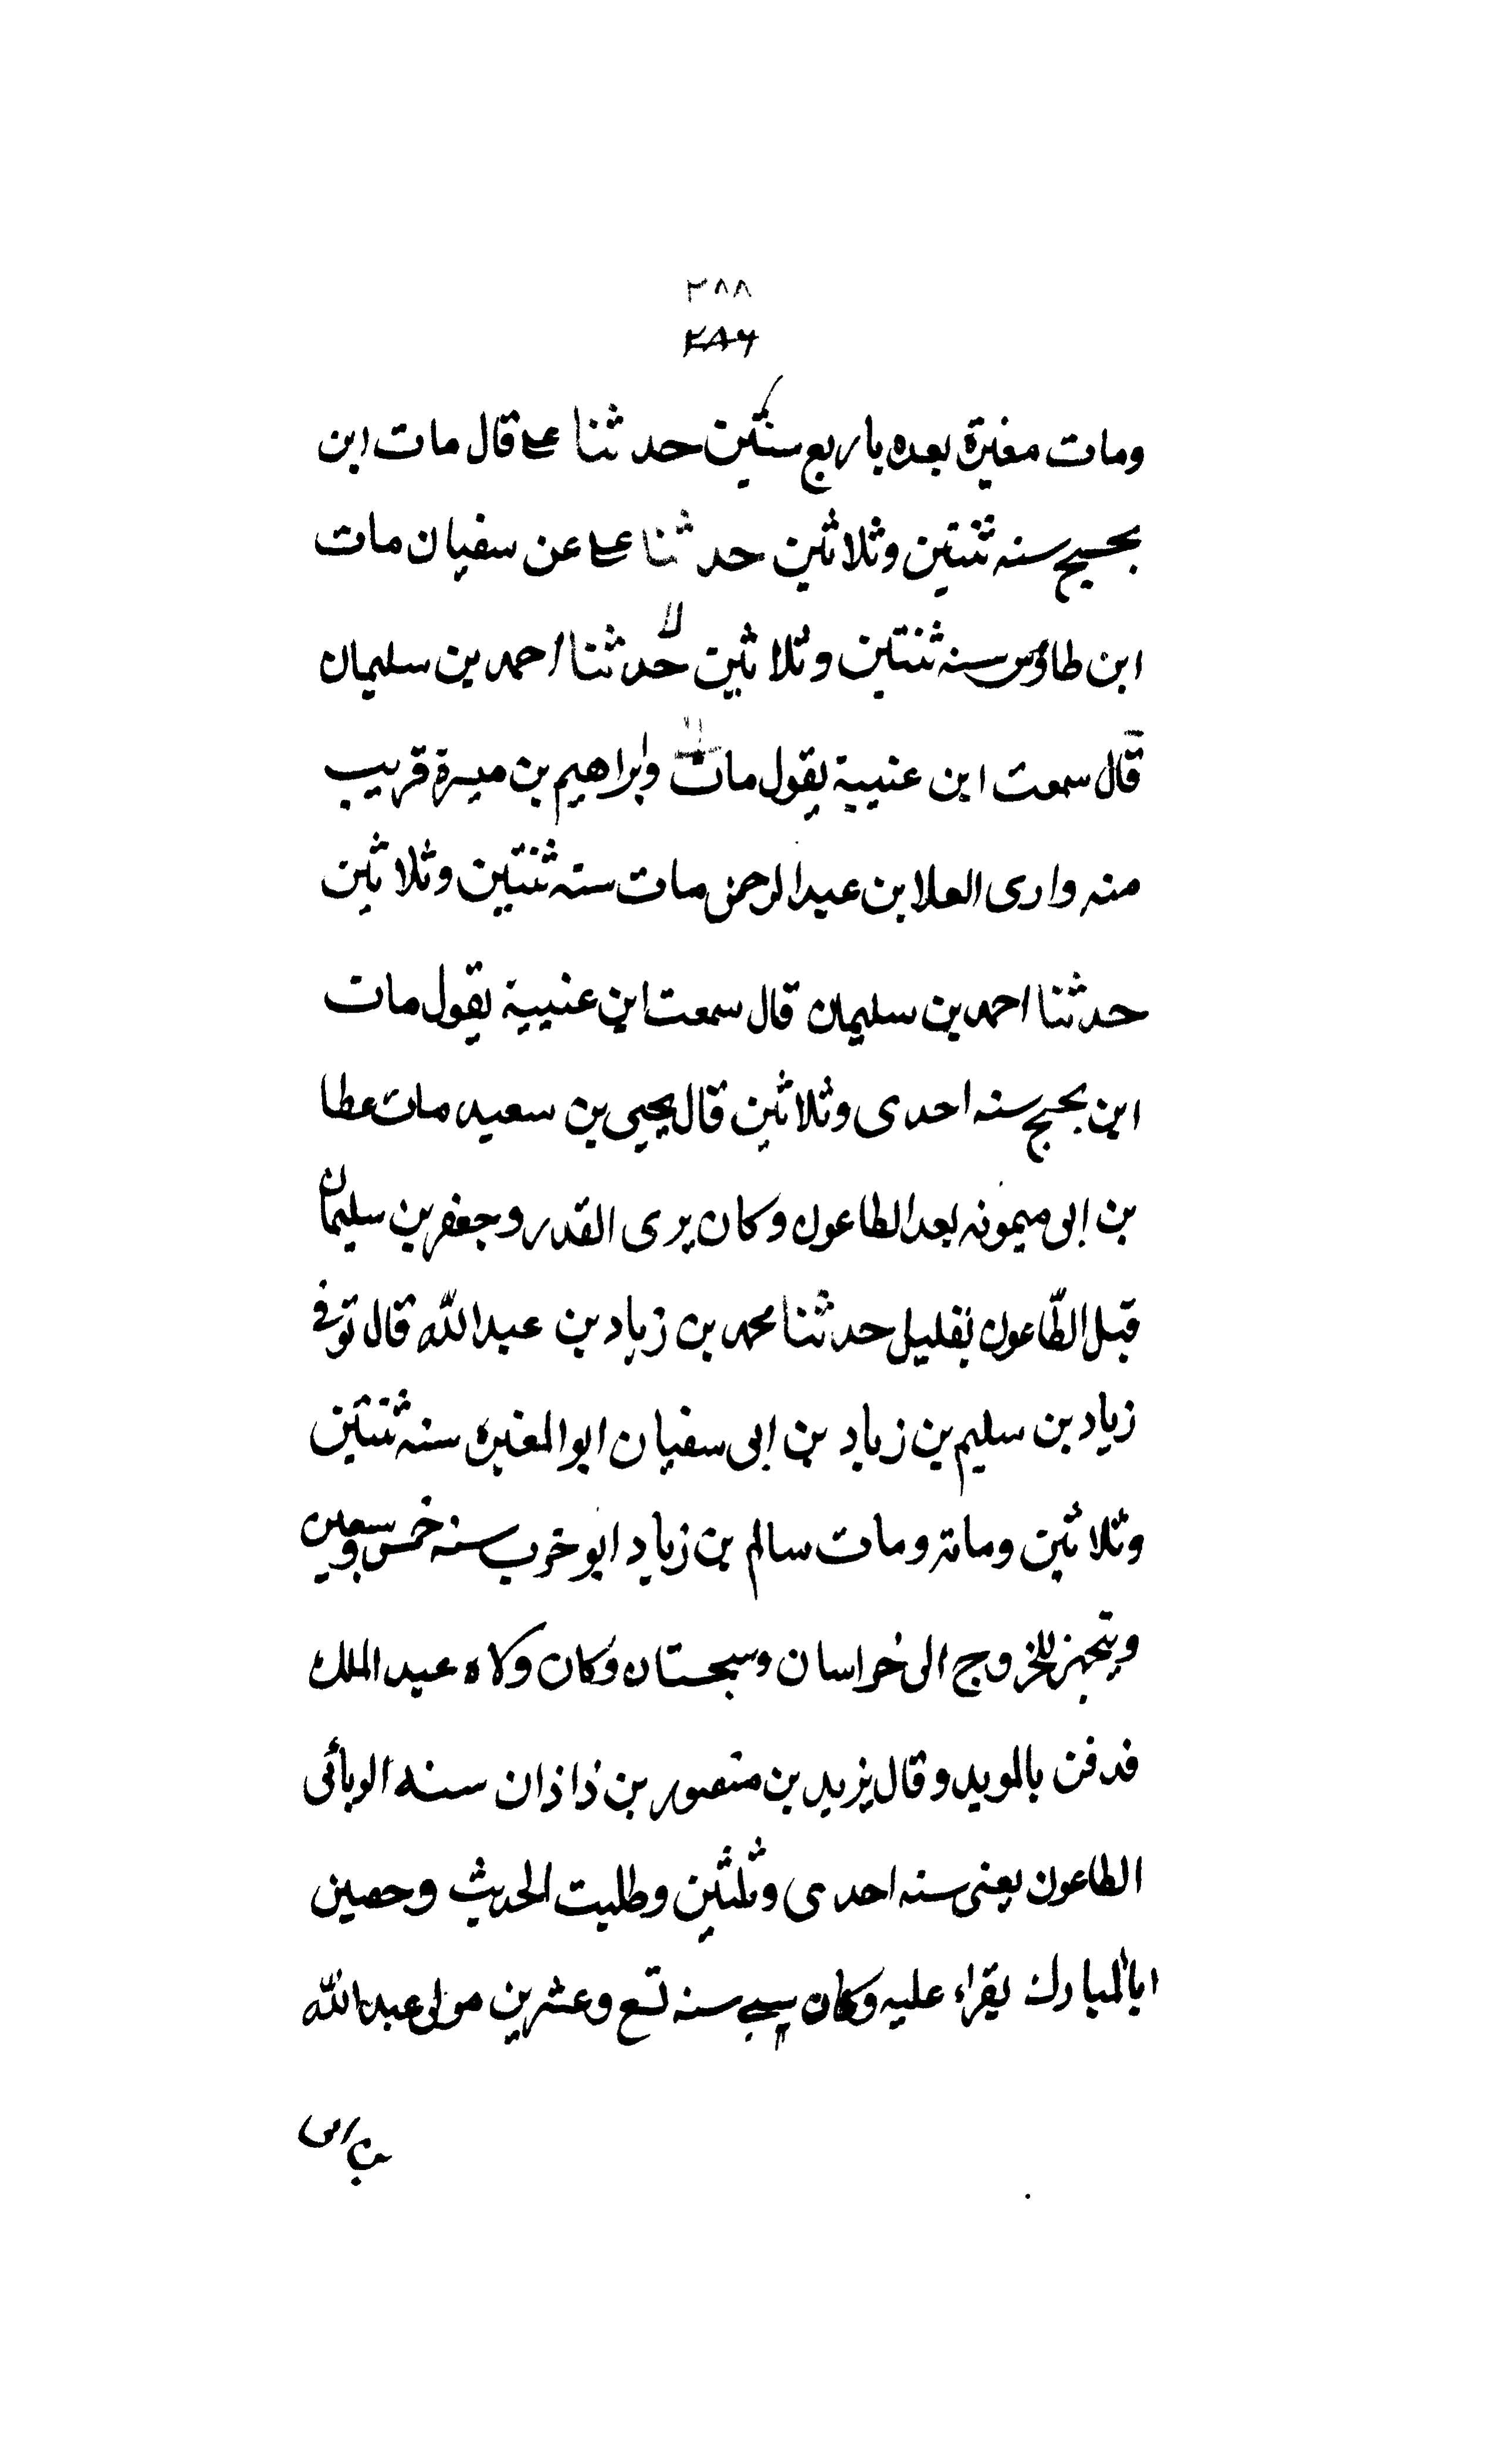 ٢٨٨
٢٨٦
ومات مغيرة بعده باربع سنتين حدثنا على قال مات ابن
بجسيح سنه ثنتين وثلاثين حدثنا على عن سفيان مات
ابن طاؤس سنه ثنتين وثلاثين حدثنا احمد بن سليمان
قال سمعت ابن عنيية يقول مات وابراهيم بن ميسرة قريب
منه وارى العلا بن عبدالرحمن مات سنه ثنتين وثلاثين
حدثنا احمد بن سليمان قال سمعت ابن عنيية يقول مات
ابن بجيح سنه احدى وثلاثين قال يحيى بن سعيد مات عطا
بن ابى ميمونه بعد الطاعون وكان يرى القدر وجعفر بن سليمان
قبل الطّاعون بقليل حدثنا محمد بن زياد بن عبدالله قال توفى
زياد بن سليم بن زياد بن ابى سفيان ابوالمغيره سنه ثنتين
وثلاثين ومائة ومات سالم بن زياد ابو حرب سنه خمس وسبعين
ويتجهز للخروج الى خراسان وسجستان وكان ولاه عبد الملك
فدفن بالمويد وقال يزيد بن منصور بن ذاذان سنه الوبائى
الطاعون يعنى سنه احدى وثلثين وطلبت الحديث وحصين
ابالمبارك يقراء عليه وكان سنه تسع وعشرين مولى عبدالله